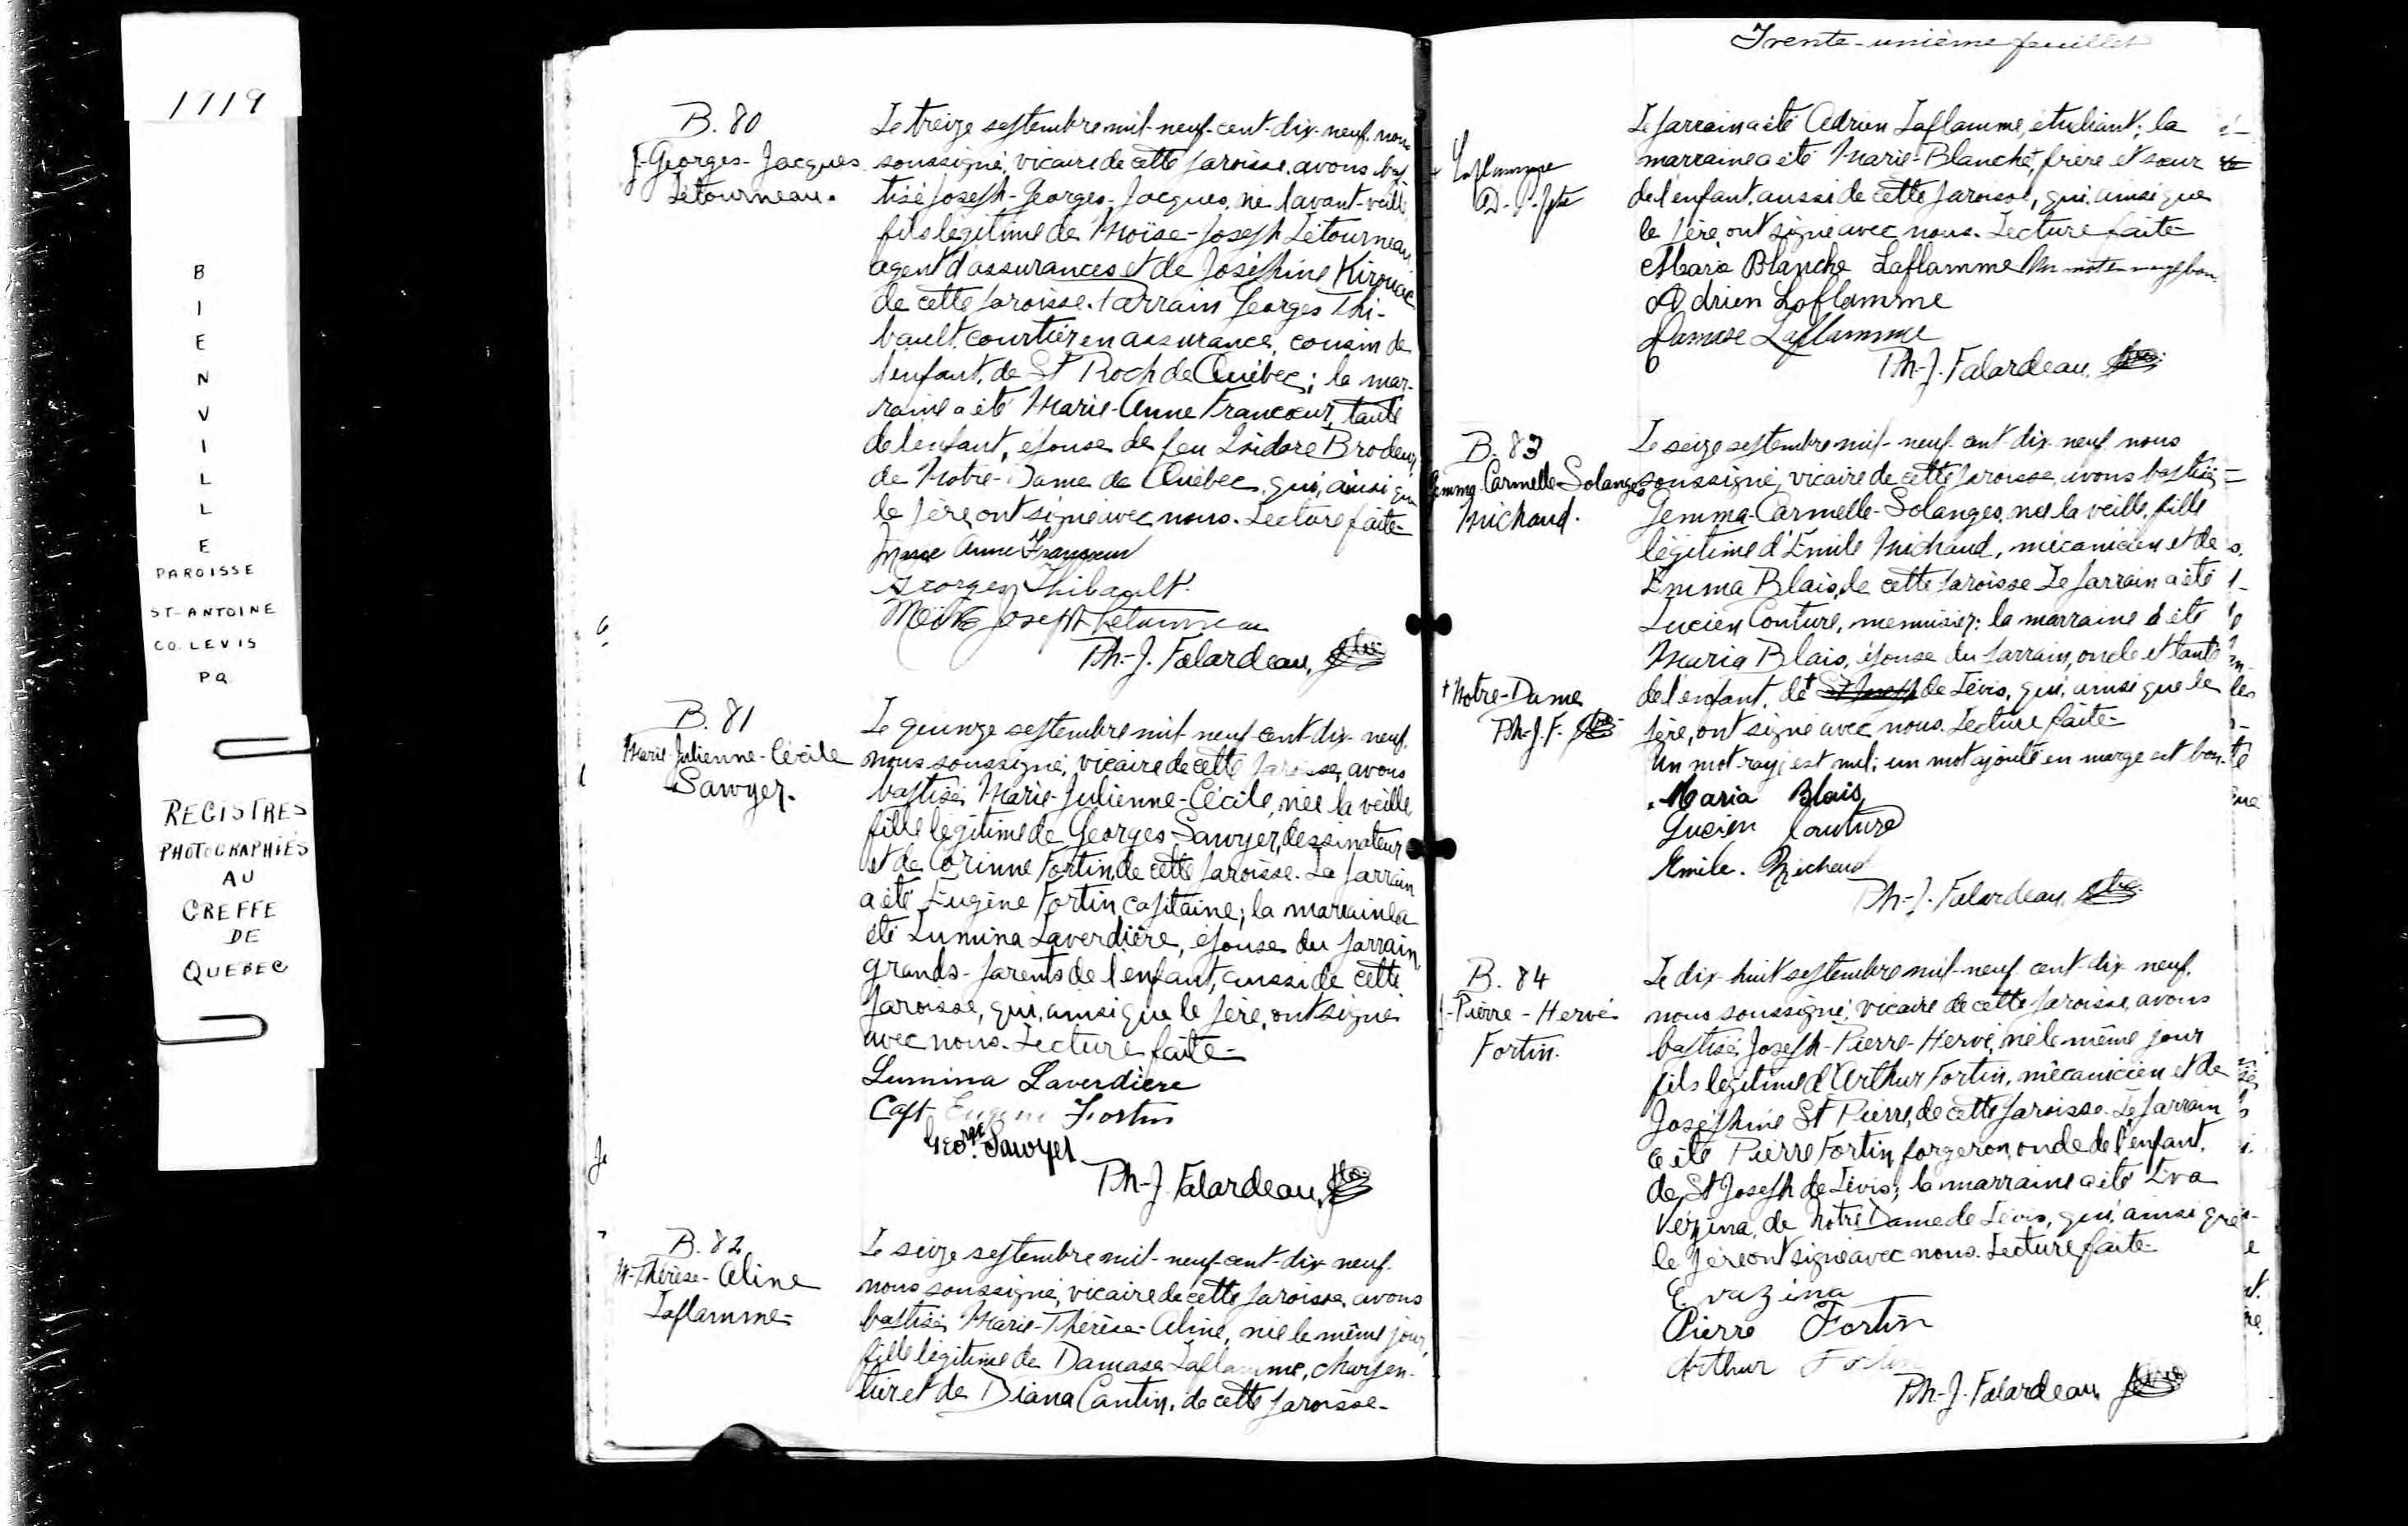 1919
BIENVILLE
PAROISSE
ST-ANTOINE
CO. LEVIS
P.Q.
REGISTRES
PHOTOGRAPHIÉS
AU
GREFFE
DE
QUEBEC
B. 80
J.-Georges-Jacques
Létourneau.
Le treize septembre mil-neuf-cent-dix-neuf, nous
soussigné, vicaire de cette paroisse, avons bap-
tisé Joseph-Georges-Jacques, né l'avant-veille
fils légitime de Moïse-Joseph Létourneau
agent d'assurances et de Joséphine Kirouac
de cette paroisse. Parrain Georges Thi-
bault, courtier en assurance, cousin de
l'enfant, de St Roch de Québec; la mar-
raine a été Marie-Anne Francœur, tante
de l'enfant, épouse de feu Isidore Brodeur,
de Notre-Dame de Québec, qui, ainsi que
le père, ont signé avec nous. Lecture faite-
Marie Anne Francoeur
Georges Thibault
Moïse Joseph Letourneau
Ph.-J. Falardeau, ptre.
B. 81
Marie-Julienne-Cécile
Sawyer.
Le quinze septembre mil-neuf-cent-dix-neuf,
nous soussigné, vicaire de cette paroisse, avons
baptisé Marie-Julienne-Cécile, née la veille
fille légitime de Georges Sawyer, dessinateur
et de Corinne Fortin, de cette paroisse. Le parrain
a été Eugène Fortin, capitaine; la marraine a
été Lumina Laverdière, épouse du parrain,
grands-parents de l'enfant, aussi de cette
paroisse, qui, ainsi que le père, ont signé
avec nous. Lecture faite-
Lumina Laverdiere
Capt Eugene Fortin
Geo. Sawyer
Ph-J. Falardeau, ptre.
B. 82
M-Thérèse-Aline
Laflamme-
Le seize septembre mil-neuf-cent-dix-neuf
nous soussigné, vicaire de cette paroisse, avons
baptisé Marie-Thérèse-Aline, née le même jour,
fille légitime de Damase Laflamme, charpen-
tier et de Diana Cantin, de cette paroisse-
Trente-unième feuillet
+ Laflamme
Le parrain a été Adrien Laflamme, étudiant; la
marraine a été Marie-Blanche+, frère et sœur
de l'enfant, aussi de cette paroisse, qui, ainsi que
le père, ont signé avec nous. Lecture faite-
Marie Blanche Laflamme Un mot en marge bon.
Adrien Laflamme
Damase Laflamme
Ph-J. Falardeau, ptre.
B. 83
Gemma-Carmelle-Solanges
Michaud.
Le seize septembre mil-neuf cent-dix neuf nous
soussigné, vicaire de cette paroisse, avons baptisé
Gemma-Carmelle-Solanges, née la veille, fille
légitime d'Émile Michaud, mécanicien et de
Emma Blais, de cette paroisse Le parrain a été
Lucien Couture, menuisier; la marraine a été
Maria Blais, épouse du parrain, oncle et tante
de l'enfant, de+ St Joseph de Lévis, qui, ainsi que le
père, ont signé avec nous. Lecture faite-
Un mot rayé est nul; un mot ajouté en marge est bon-
+ Notre-Dame
Ph-J.F. ptre-
Maria Blais
Lucien Couture
Emile. Michaud
Ph-J. Falardeau, ptre.
B. 84
J-Pierre-Hervé
Fortin.
Le dix-huit septembre mil-neuf cent-dix neuf,
nous soussigné, vicaire de cette paroisse, avons
baptisé, Joseph-Pierre-Hervé, né le même jour
fils légitime d'Arthur Fortin, mécanicien et de
Joséphine St Pierre, de cette paroisse. Le parrain
a été Pierre Fortin, forgeron, oncle de l'enfant,
de St Joseph de Lévis; la marraine a été Eva
Vézina, de Notre Dame de Lévis, qui, ainsi que
le père ont signé avec nous. Lecture faite-
E vazina
Pierre Fortin
Arthur Fortin
Ph-J. Falardeau, ptre